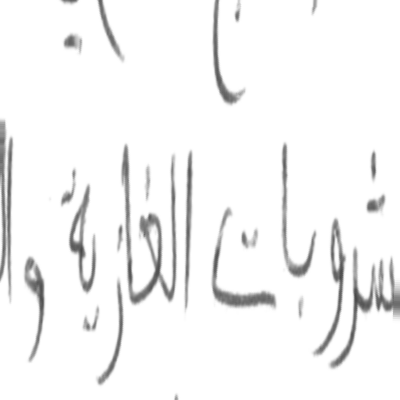 شروبات الغازية وا